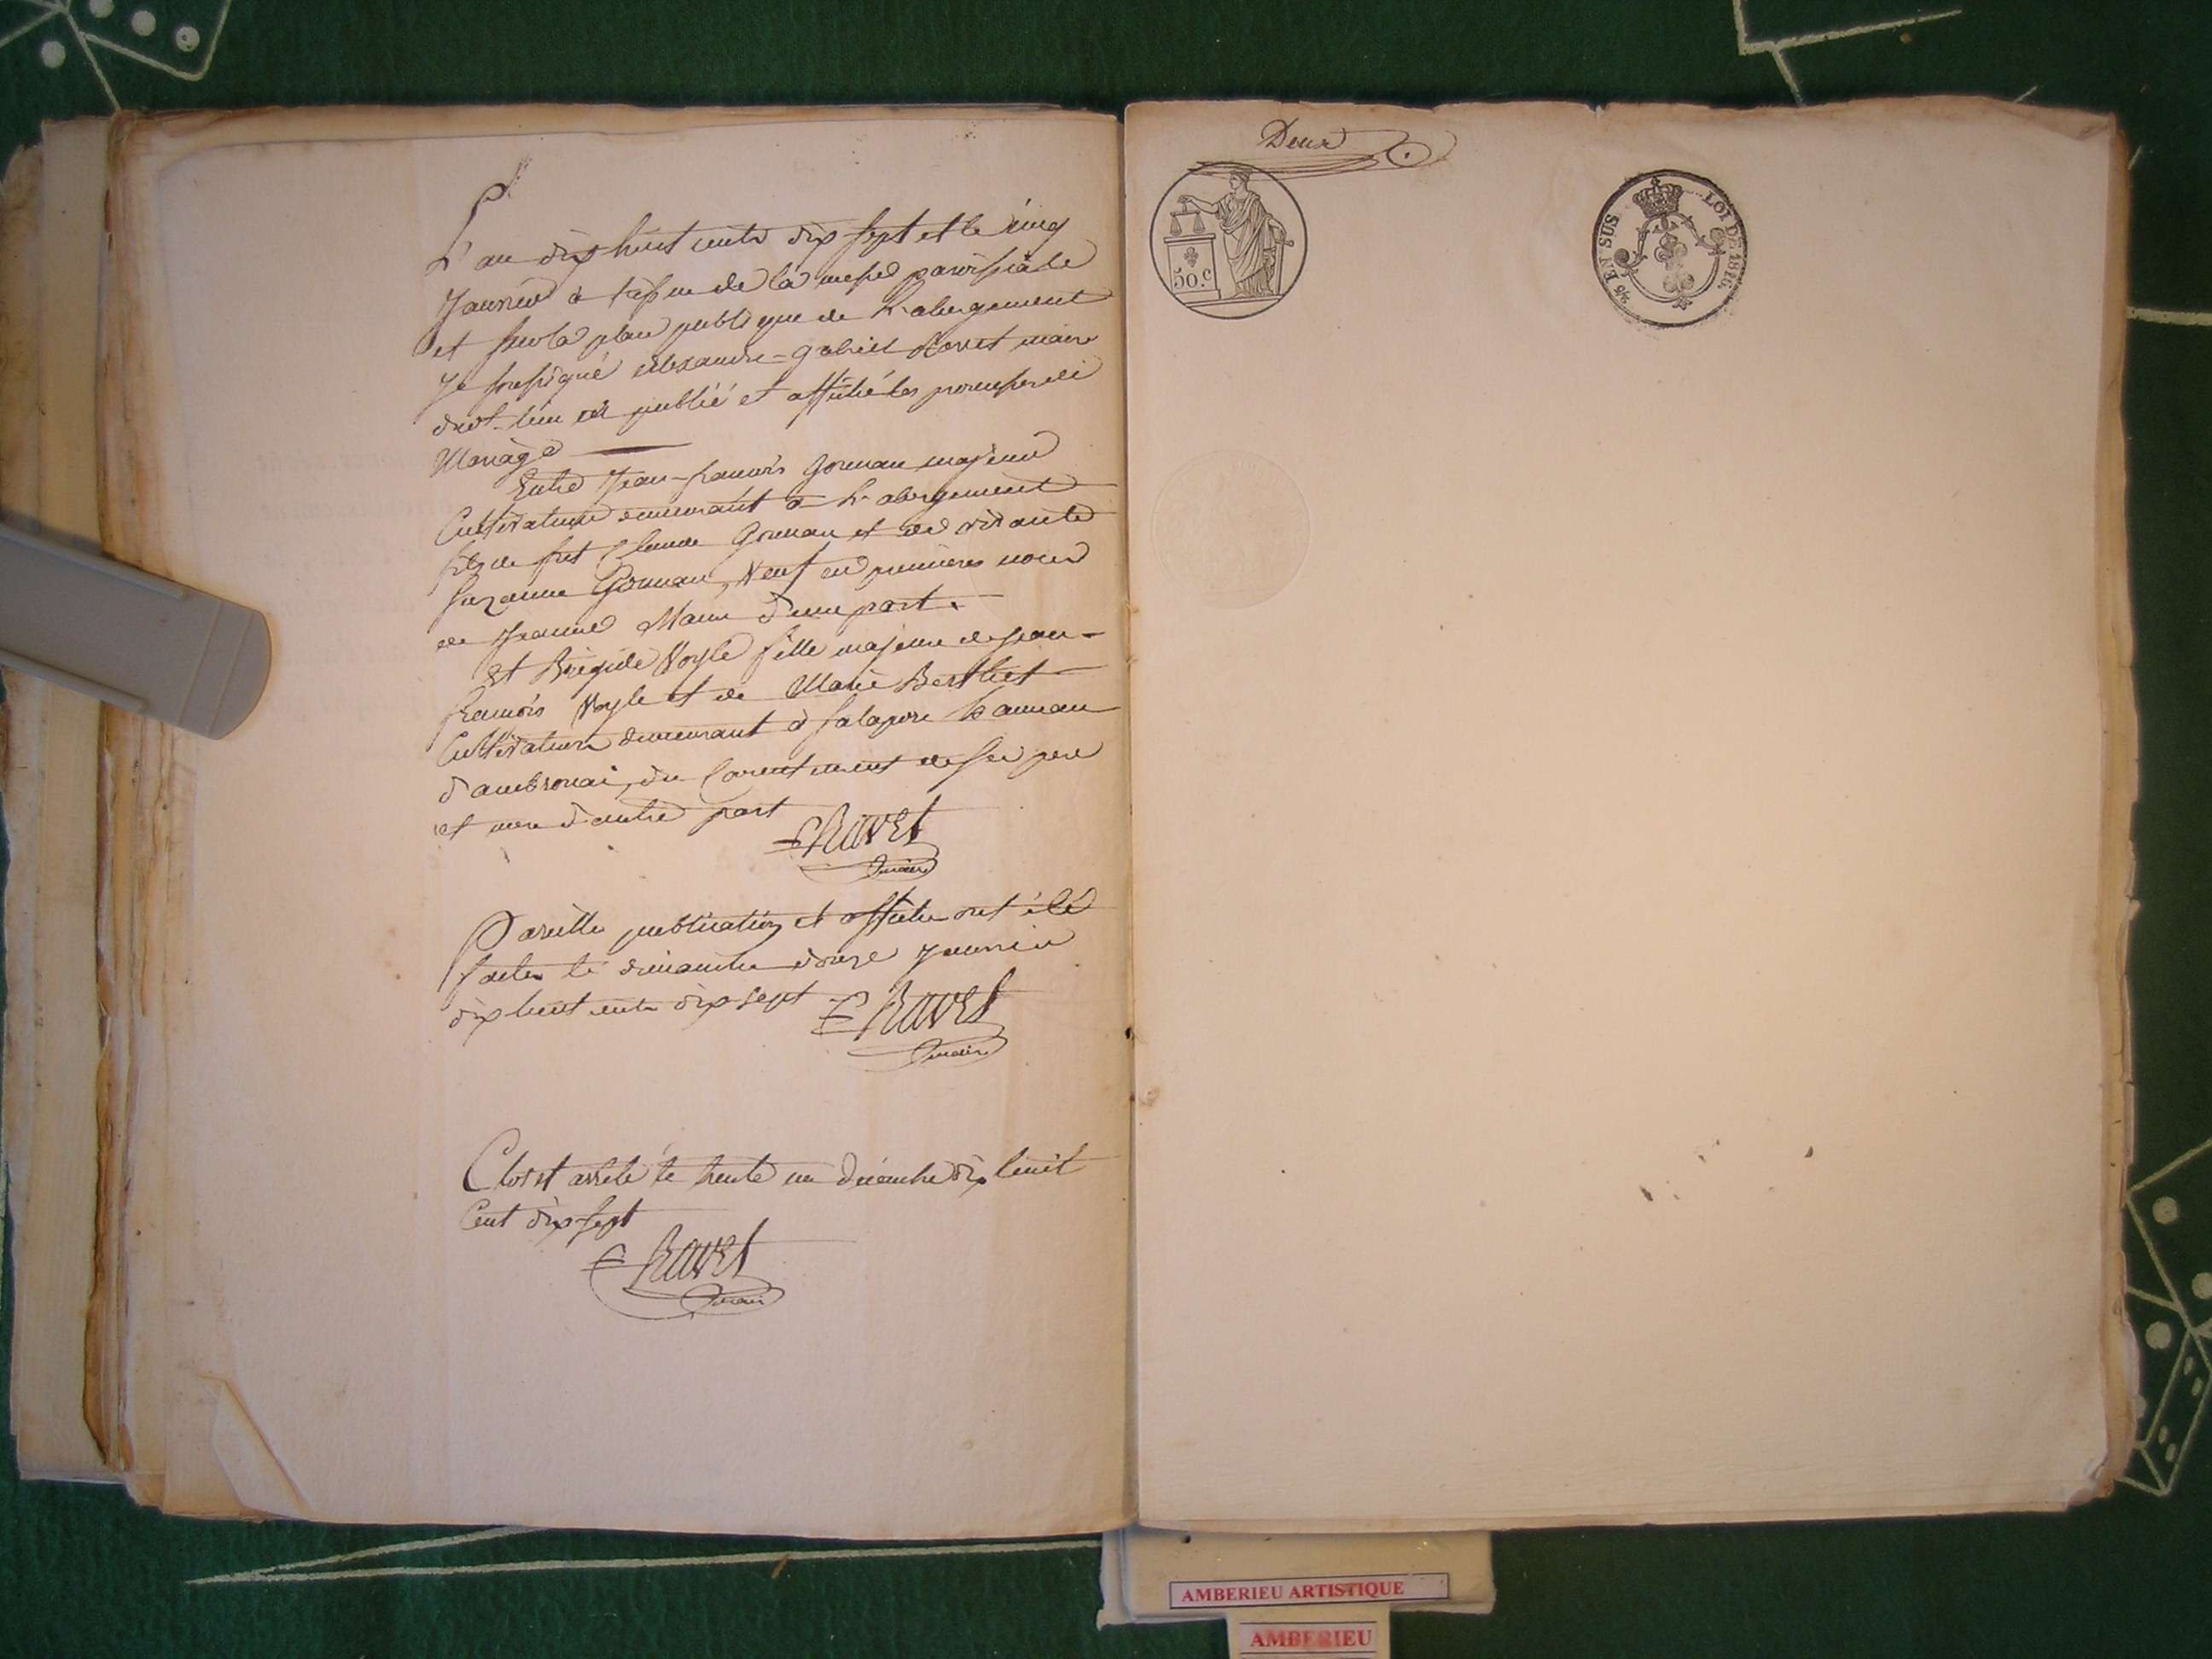 L'an dix huit cents dix sept et le cinq
Janvier à l'issue de la messe paroissiale
et sur la place publique de L'abergement
Je soussigné alexandre=gabriel Ravet maire
dud. lieu ai publié et affiché les promesses de
Mariage
Entre Jean-francois Gonnan majeur
Cultivateur demeurant à L'abergement
fils de feu Claude Gonnan et de vivante
Suzanne Gonnan, Veuf en premieres noces
de Jeanne d'une part.
Et Brigide Voyle fille majeure de jean-
francois Voyle et de Marie Berthet
Cultivateurs demeurant à Salaport hameau
d'ambronai, du Consentement de ses pere
et mere d'autre part
Ravet
maire
Pareille publication et affiche ont été
faites le dimanche douze Janvier
dix huit cents dix sept
Ravet
maire
Clos et arrêté le trente un Décembre dix huit
Cent dix-sept
Ravet
maire
Deux
50.C
EN SUS
LOI DE 1816.
AMBERIEU ARTISTIQUE
AMBERIEU